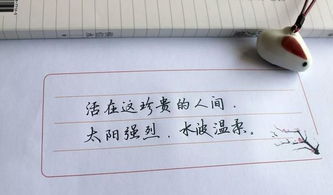 活在这珍贵的人间．
太阳强烈．水波温柔。